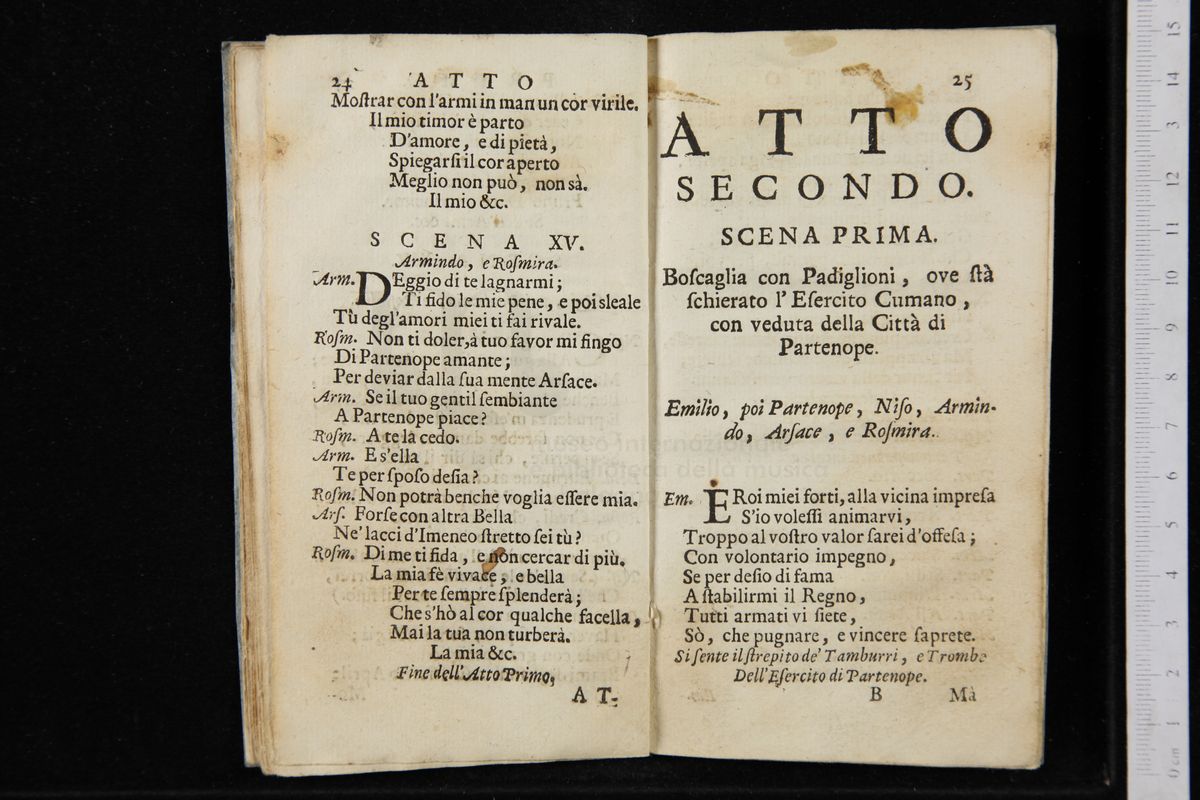 24 ATTO
Moſtrar con l'armi in man un cor virile.
Il mio timor è parto
D'amore, e di pietà,
Spiegarſi il cor aperto
Meglio non può, non sà.
Il mio &c.
SCENA XV.
Armindo, e Roſmira.
Arm. DEggio di te lagnarmi;
Ti fido le mie pene, e poi sleale
Tù degl'amori miei ti fai rivale.
Roſm. Non ti doler, à tuo favor mi fingo
Di Partenope amante;
Per deviar dalla ſua mente Arſace.
Arm. Se il tuo gentil ſembiante
A Partenope piace?
Roſm. A te la cedo.
Arm. E s'ella
Te per ſpoſo deſia?
Roſm. Non potrà benche voglia eſſere mia.
Arſ. Forſe con altra Bella
Ne' lacci d'Imeneo ſtretto ſei tù?
Roſm. Di me ti fida, e non cercar di più.
La mia fè vivace, e bella
Per te ſempre ſplenderà;
Che s'hò al cor qualche facella,
Mai la tua non turberà.
La mia &c.
Fine dell'Atto Primo,
AT-
25
ATTO
SECONDO.
SCENA PRIMA.
Boſcaglia con Padiglioni, ove ſtà
ſchierato l'Eſercito Cumano,
con veduta della Città di
Partenope.
Emilio, poi Partenope, Niſo, Armin-
do, Arſace, e Roſmira.
Em. ERoi miei forti, alla vicina impreſa
S'io voleſſi animarvi,
Troppo al voſtro valor ſarei d'offeſa;
Con volontario impegno,
Se per deſio di fama
A ſtabilirmi il Regno,
Tutti armati vi ſiete,
Sò, che pugnare, e vincere ſaprete.
Si ſente il ſtrepito de' Tamburri, e Trombe
Dell'Eſercito di Partenope.
B Mà
internazionale
e biblioteca della musica
0 cm 1 2 3 4 5 6 7 8 9 10 11 12 13 14 15